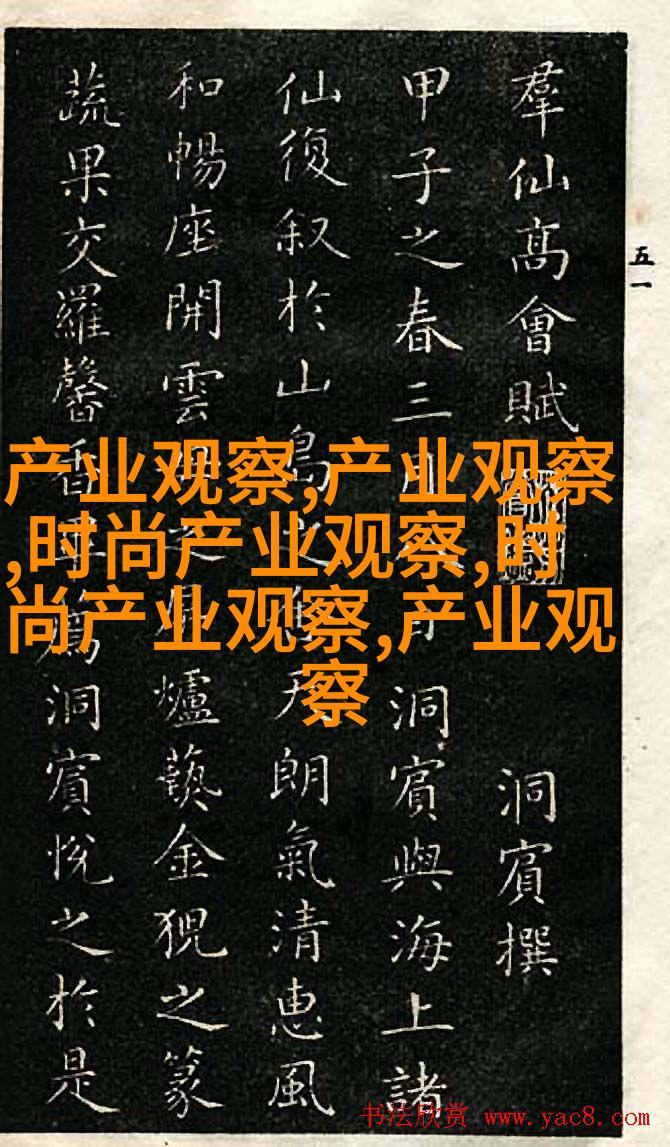 羣仙高會賦
洞賓撰
甲子之春三月
洞賓與海上諸
仙復叙於山島之
天朗氣清惠風
和暢座開雲母之屏
爐藝金猊之篆
蔬果交羅馨香
洞賓悅之於是
五一
产业观察,产业观察
,时尚产业观察,时
尚产业观察,产业观
察
书法欣赏 www.yac8.com